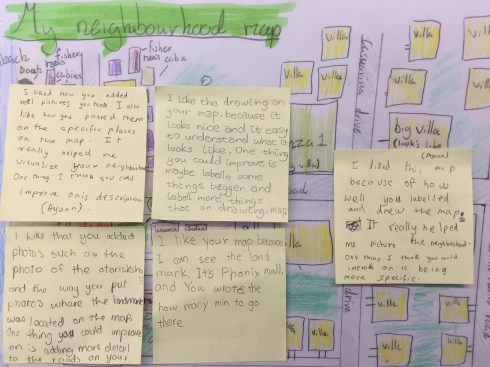 My neighbourhood map
beach
boats
fishery
cabins
fisher
men's
villa
villa
villa
villa
villa
villa
Big villa
drive
villa
villa
villa
villa
villa
villa
I liked how you added
well pictures you took. I also
like how you pasted them
on the specific places
on the map. It
really helped me
visualize your neighbour
One thing I think you could
improve on is description
(Ayaan).
I like the drawing on
your map. because it
looks nice and it easy
to understand what it
looks like. One thing
you could improve is
maybe label some
things bigger and
label more things
the on drawing map.
(Ayaan)
I liked this map
because of how
well you labelled
and drew the map.
It really helped
me picture the neighborhood.
One thing I think you could
improve on is being
more specific.
I like that you added
photo's such as the
photo of the
and the way you put
photo's where the landmark
was located on the map
One thing you could improve
on is adding more detail
to the roads on your
I like your map. because
I can see the land
mark. It's Phonix mall,
and You wrote the
how many min to go
there